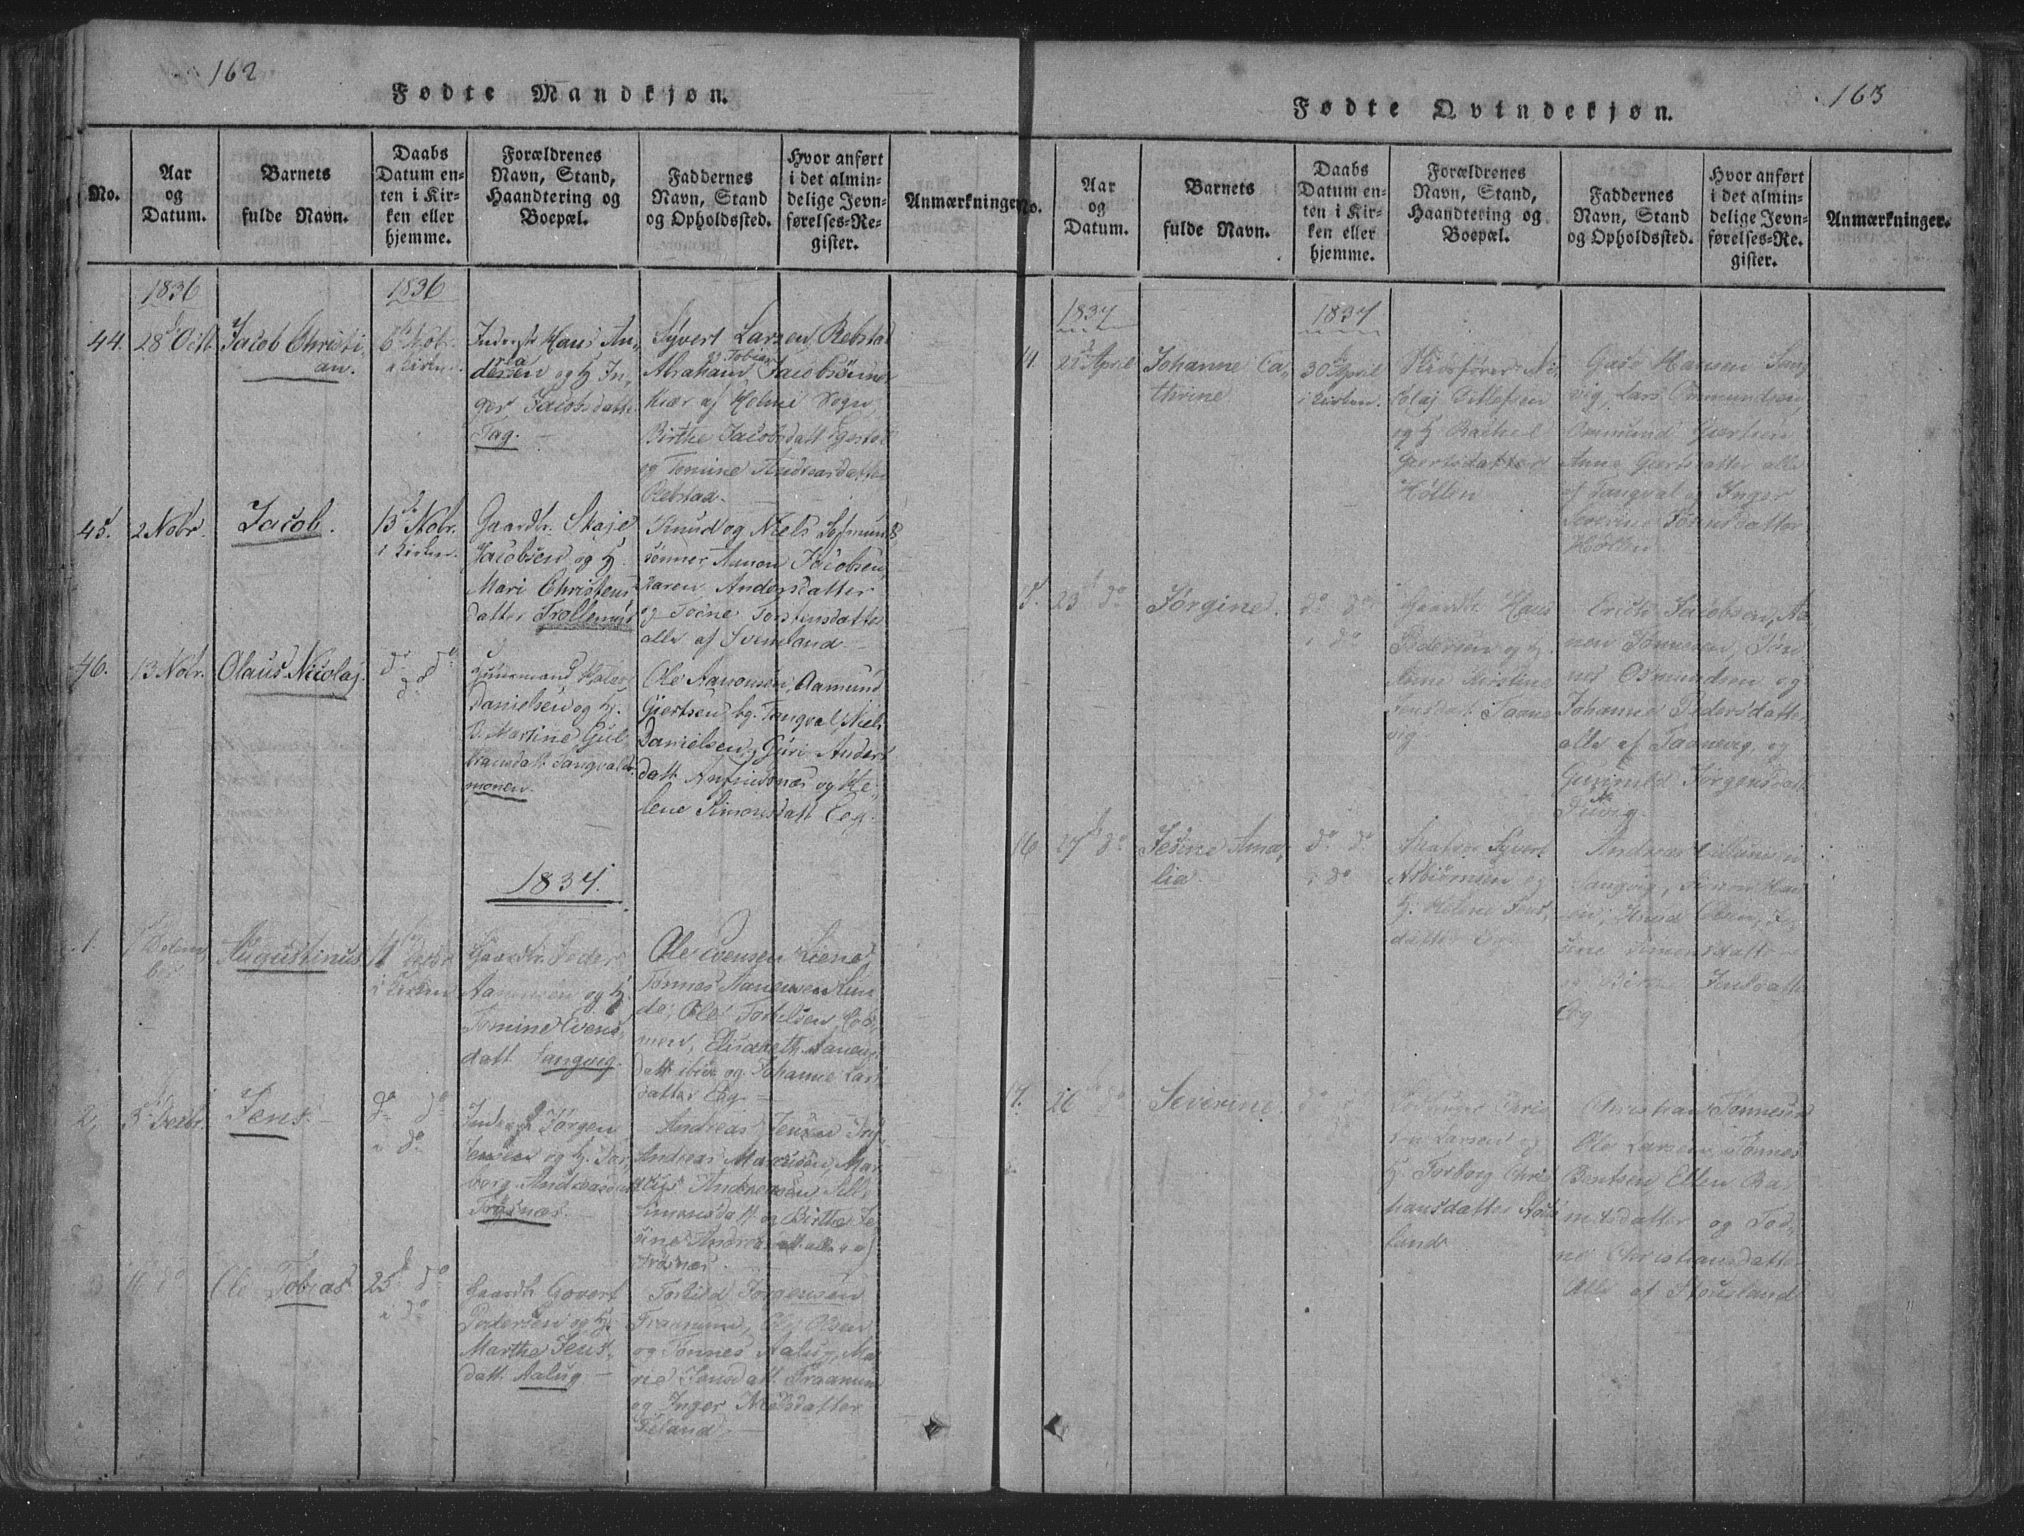 162
Fødte Mandkjøn.
No.
Aar
og
Datum.
Barnets
fulde Navn.
Daabs
Datum en-
ten i Kir-
ken eller
hjemme.
Forældrenes
Navn, Stand,
Haandtering og
Boepæl.
Faddernes
Navn, Stand
og Opholdssted.
Hvor anført
i det almin-
delige Jevn-
førelses-Re-
gister.
Anmærkninger.
1836
1836
44.
28 Octb
Jacob Christi-
an.
6 Nobr.
i Kirken.
Hans An-
dersen og H. In-
ger Jacobsdatter
Tag.
Syvert Larsen Rebstad
Tobias
Abraham Jacobsønner
Kiær af Holme Sogn,
Birthe Jacobsdatt
og Tomine Andreasdatter
Rebstad.
45.
2 Nobr.
Jacob.
13 Nobr.
i Kirken.
Gaardbr. Skaje
Jacobsen og H.
Mari Christens-
datter Trollemyr
Knud og Niels
sønner Aanon Jacobsen,
Karen Andersdatter
og Torine Torstensdatter
alle af Sveinland
46.
13 Nobr.
Olaus Nicolaj.
do do
do
Danielsen og H.
Martine Gul-
Tangvald-
monen.
Ole Aanonsen, Aamund
Giertsen, bg. Tangval, Niels
Danielsen, Guri Anders-
datt. og He-
lene Simonsdatt Eeg.
1837.
1.
Decem-
ber
Augustinus
11 Decbr
i Kirken
Gaardbr. Peder
Aanonsen og H.
Tomine Evens-
datt. Langvig.
Ole Evensen
Tønnes Aanensen Lun-
de, Ole Torkelsen
Elisabeth Aanens-
datt og Johanne Lars-
datter Eeg
2.
5 Decbr.
Jens
do do
i do
Jørgen
Jensen og H. Tor-
borg Andreasdatt
Frøsnæs.
Andreas Jensen
Andreas Marcusen, Mar-
Andreasen Sille
Simonsdatt og Birthe Je-
sine
Frøsnæs.
3
11 do
Ole Tobias
25 do
i do
Gaardbr Govert
Pedersen og H.
Marthe Jens-
datt. Aalug
Torkild Jørgensen
Fraanum, Ole Olsen
og Tønnes Aalug, Ma-
rie Jensdatt. Fraanum
og Inger Nielsdatter
Fieland.
163
Fødte Qvindekjøn.
No.
Aar
og
Datum.
Barnets
fulde Navn.
Daabs
Datum en-
ten i Kir-
ken eller
hjemme.
Forældrenes
Navn, Stand,
Haandtering og
Boepæl.
Faddernes
Navn, Stand
og Opholdssted.
Hvor anført
i det almin-
delige Jevn-
førelses-Re-
gister.
Anmærkninger.
1837
1837
14.
21 April
Johanne Ca-
thrine
30 April
i Kirken.
Skibsfører Ni-
colaj Ditlefsen
og H Rachel
Giertsdatter
Høllen
Hansen Lang-
vig, Lars Ommundsen,
Osmund Giertsen
Anne Giertsdatter alle
af Tangval og Inger
Severine Tønnesdatter
Høllen
15.
23 do
Jørgine.
do do
i do
Gaardbr Hans
Pedersen og H.
Anne Kirstine
Jensdat. Taane-
vig
Erich Jacobsen, Aa-
nen Tønnesen, Tøn-
nes Osmundsen og
Johanne Pedersdatter
alle af Taanevig, og
Gunnild Jørgensdatt
16
27 do
Jesine Ama-
lie.
do do
i do
Matros Syvert
Asbiørnsen og
H. Helene Jens-
datter Eeg
Andreas
Langvig, Simon Han-
sen, Knud Olsen, Je-
sine Simonsdatter
og Birthe Jensdatter
Eeg
17.
26 do
Severine
do
Chris-
en Larsen og
H. Torborg Chris-
hansdatter Stous-
land
Christian Tønnesen
Ole Larsen Tønnes
Bentsen, Ellen Ba-
rentsdatter og Tod-
ne Christiansdatter
Alle af Stousland